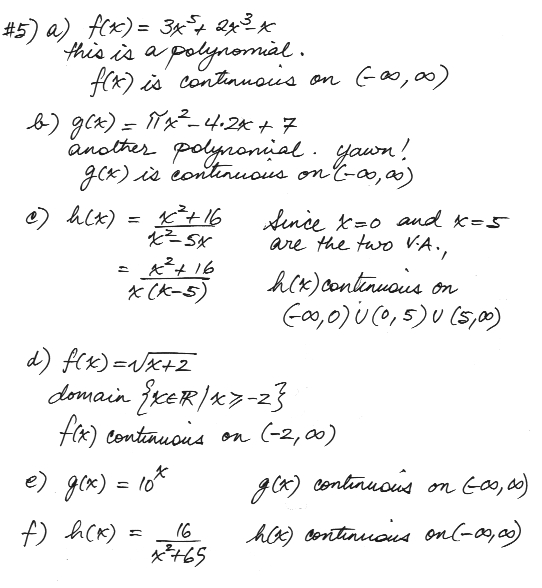 #5) a) f(x) = 3x⁵+ 2x³-x
this is a polynomial.
f(x) is continuous on (-∞,∞)
b) g(x) = πx²-4.2x + 7
another polynomial. yawn!
g(x) is continuous on (-∞,∞)
c) h(x) = (x²+16)/(x²-5x) Since x=0 and x=5
are the two V.A.,
= (x²+16)/(x(x-5)) h(x) continuous on
(-∞,0) ∪ (0,5) ∪ (5,∞)
d) f(x) = √(x+2)
domain {x∈ℝ/x⩾-2}
f(x) continuous on (-2,∞)
e) g(x) = 10ˣ g(x) continuous on (-∞,∞)
f) h(x) = 16/(x²+65) h(x) continuous on (-∞,∞)